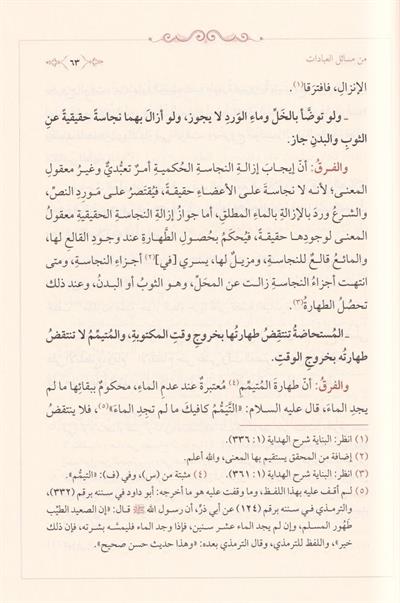 من مسائل العبادات
٦٣
الإنزالِ، فافترَقا(١).
ـ ولو توضَّأ بالخَلِّ وماءِ الوَردِ لا يجوز، ولو أزالَ بهما نجاسةً حقيقيةً عنِ
الثوبِ والبدنِ جاز.
والفرقُ: أنّ إيجابَ إزالةِ النجاسةِ الحُكميةِ أمرٌ تعبُّديٌّ وغيرُ معقولِ
المعنى؛ لأنه لا نجاسةَ على الأعضاءِ حقيقةً، فيُقتَصَرُ على مَوردِ النصِّ،
والشرعُ وردَ بالإزالةِ بالماءِ المطلقِ، أما جوازُ إزالةِ النجاسةِ الحقيقيةِ معقولُ
المعنى لوجودِها حقيقةً، فيُحكَمُ بحُصولِ الطَّهارةِ عند وجودِ القالعِ لها،
والمائعُ قالعٌ للنجاسةِ، ومزيلٌ لها، يسري [في](٢) أجزاءِ النجاسةِ، ومتى
انتهت أجزاءُ النجاسةِ زالت عن المحَلِّ، وهو الثوبُ أو البدنُ، وعند ذلك
تحصُلُ الطهارةُ(٣).
ـ المُستحاضةُ تنتقِضُ طهارتُها بخروجِ وقتِ المكتوبةِ، والمُتيمِّمُ لا تنتقضُ
طهارتُه بخروجِ الوقتِ.
والفرقُ: أنّ طهارةَ المُتيمِّمِ(٤) مُعتبرةٌ عند عدمِ الماءِ، محكومٌ ببقائِها ما لم
يجدِ الماءَ، قال عليه السلام: «التَّيَمُّمُ كافيكَ ما لم تجِدِ الماءَ»(٥)، فلا ينتقضُ
(١) انظر: البناية شرح الهداية (١: ٣٣٦).
(٢) إضافة من المحقق يستقيم بها المعنى، والله أعلم.
(٣) انظر: البناية شرح الهداية (١: ٣٦١). (٤) مثبتة من (س)، وفي (ف): «التيمُّم».
(٥) لم أقف عليه بهذا اللفظ، وما وقفت عليه هو ما أخرجه: أبو داود في سننه برقم (٣٣٢)،
والترمذي في سننه برقم (١٢٤) عن أبي ذرٍّ، أن رسول الله ﷺ قال: «إن الصعيد الطيِّب
طَهُور المسلم، وإن لم يجد الماء عشر سنين، فإذا وجد الماء فليمسَّه بشرته، فإن ذلك
خير»، واللفظ للترمذي، وقال الترمذي بعده: «وهذا حديث حسن صحيح».